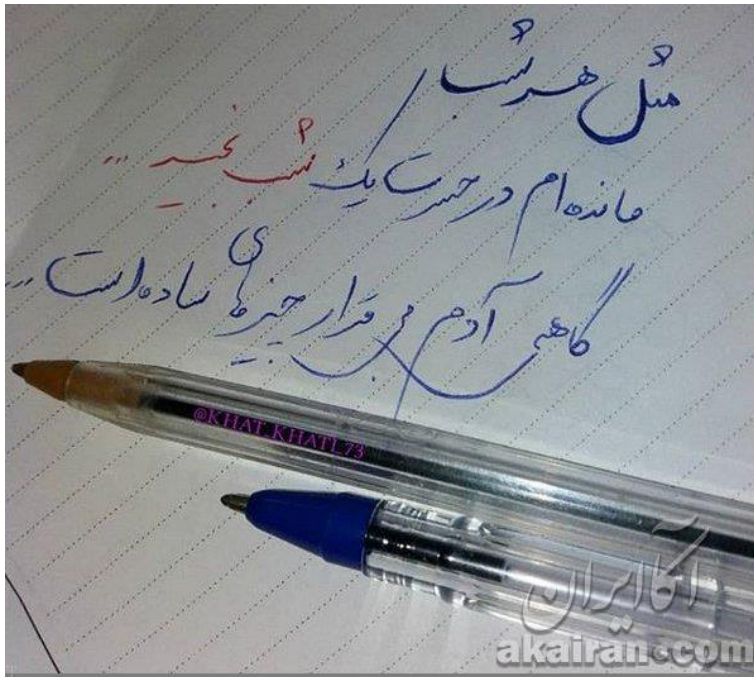 مثل هر شب
مانده‌ام در حسرت یک شب بخیر ...
گاهی آدم بی قرار چیزهای ساده است ...
@KHAT_KHATI_73
آکاایران
akairan.com